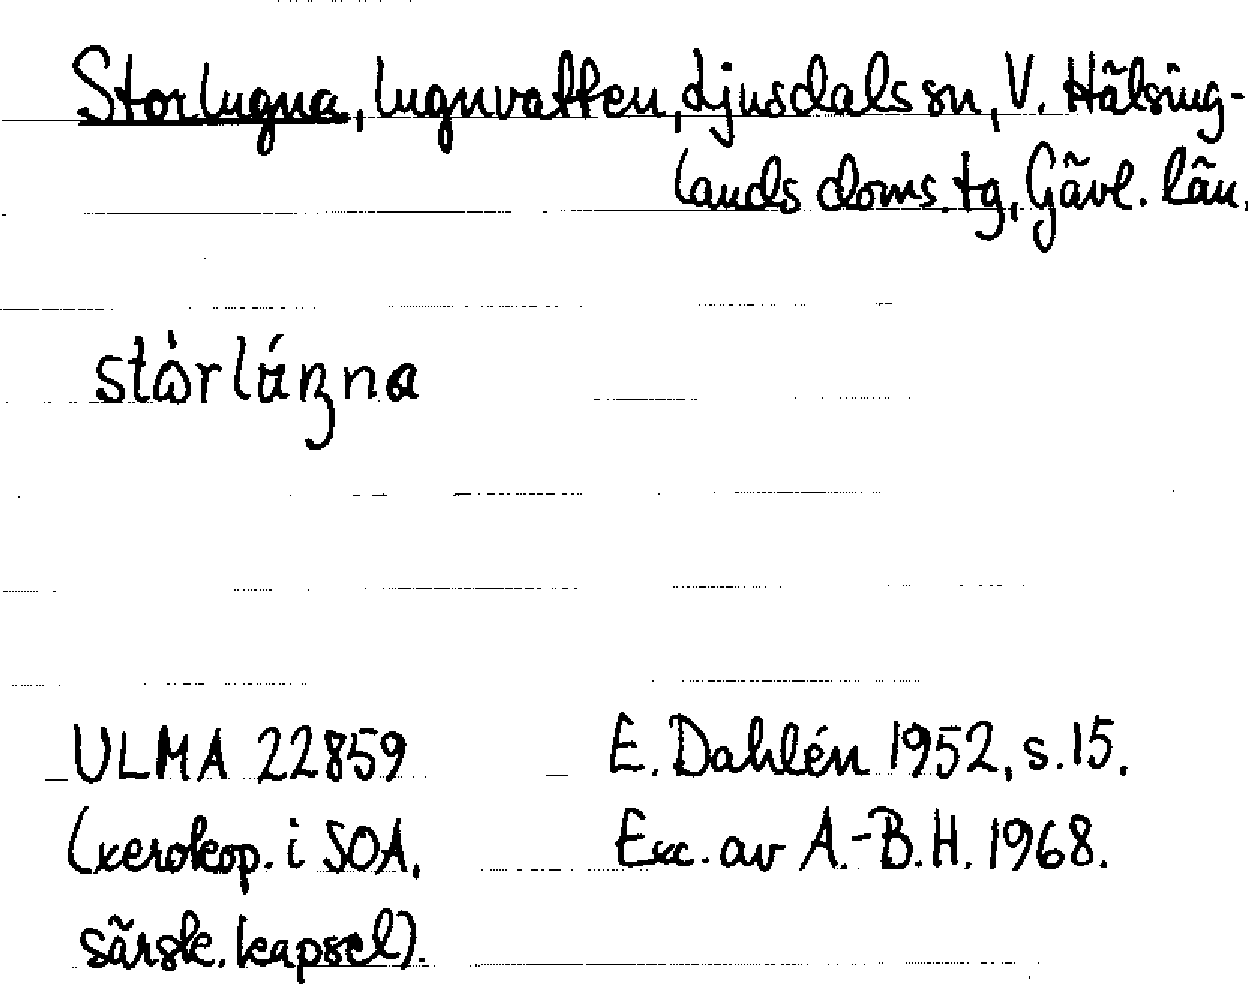 Storlugna, lugnvatten, Ljusdals sn, V. Hälsing-
lands doms. tg, Gävl. län.
ULMA 22859 E. Dahlén 1952, s. 15.
(xerokop. i SOA, Exc. av A.-B.H. 1968.
särsk. kapsel).